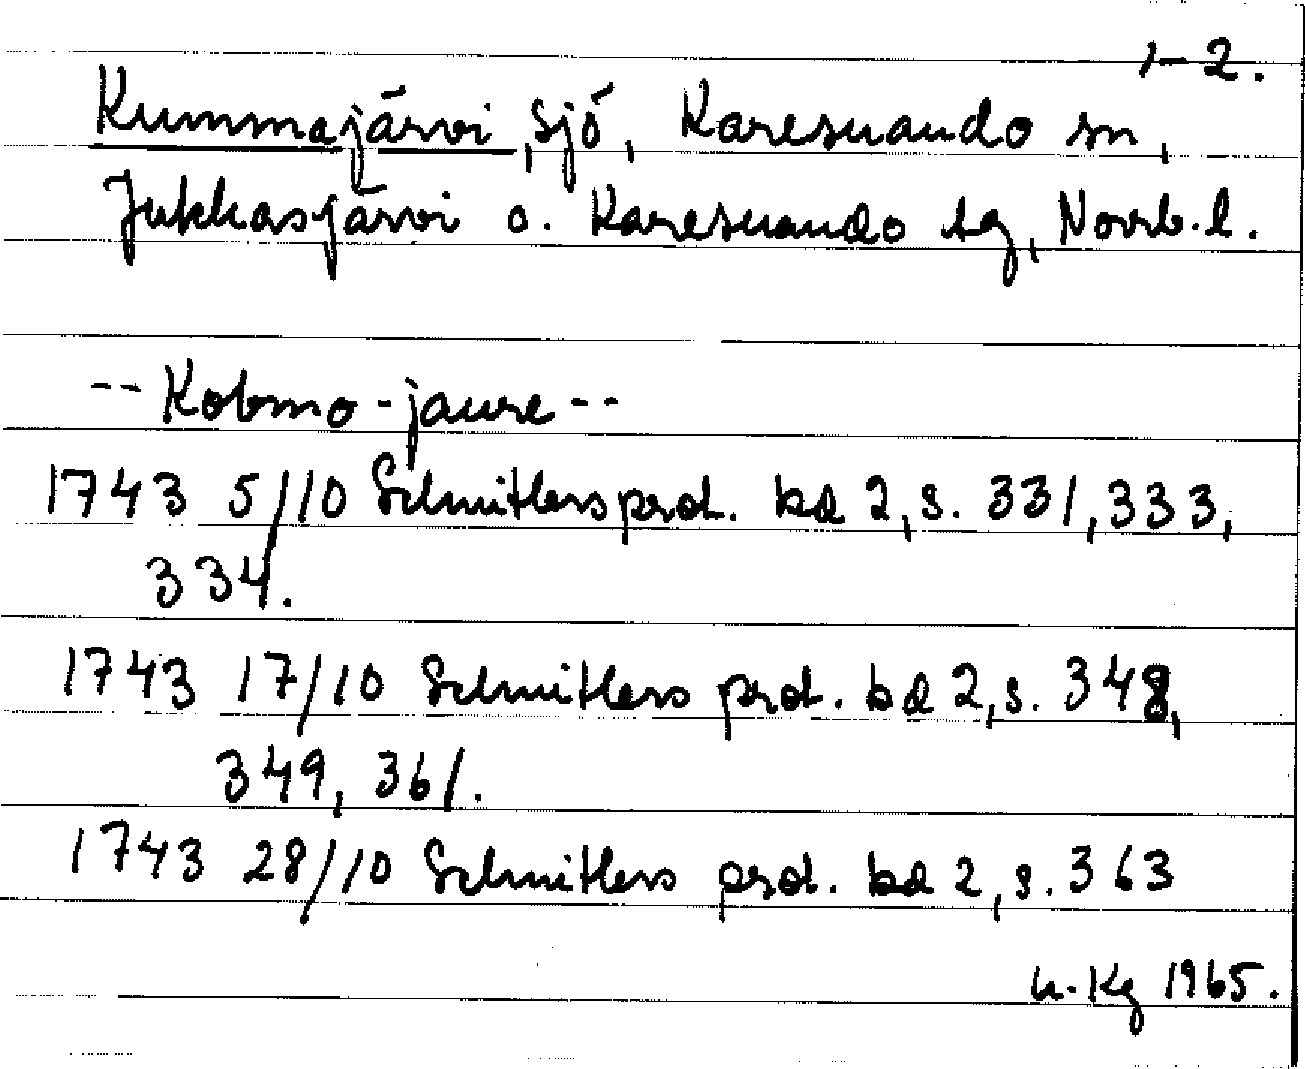 1-2.
Kummajärvi, sjö, Karesuando sn,
Jukkasjärvi o. Karesuando tg, Norrb. l.
-- Kobmo-jaure --
1743 5/10 Schnitlers prot. bd 2, s. 331, 333,
334.
1743 17/10 Schnitlers prot. bd 2, s. 348,
349, 361.
1743 28/10 Schnitlers prot. bd 2, s. 363
1965.